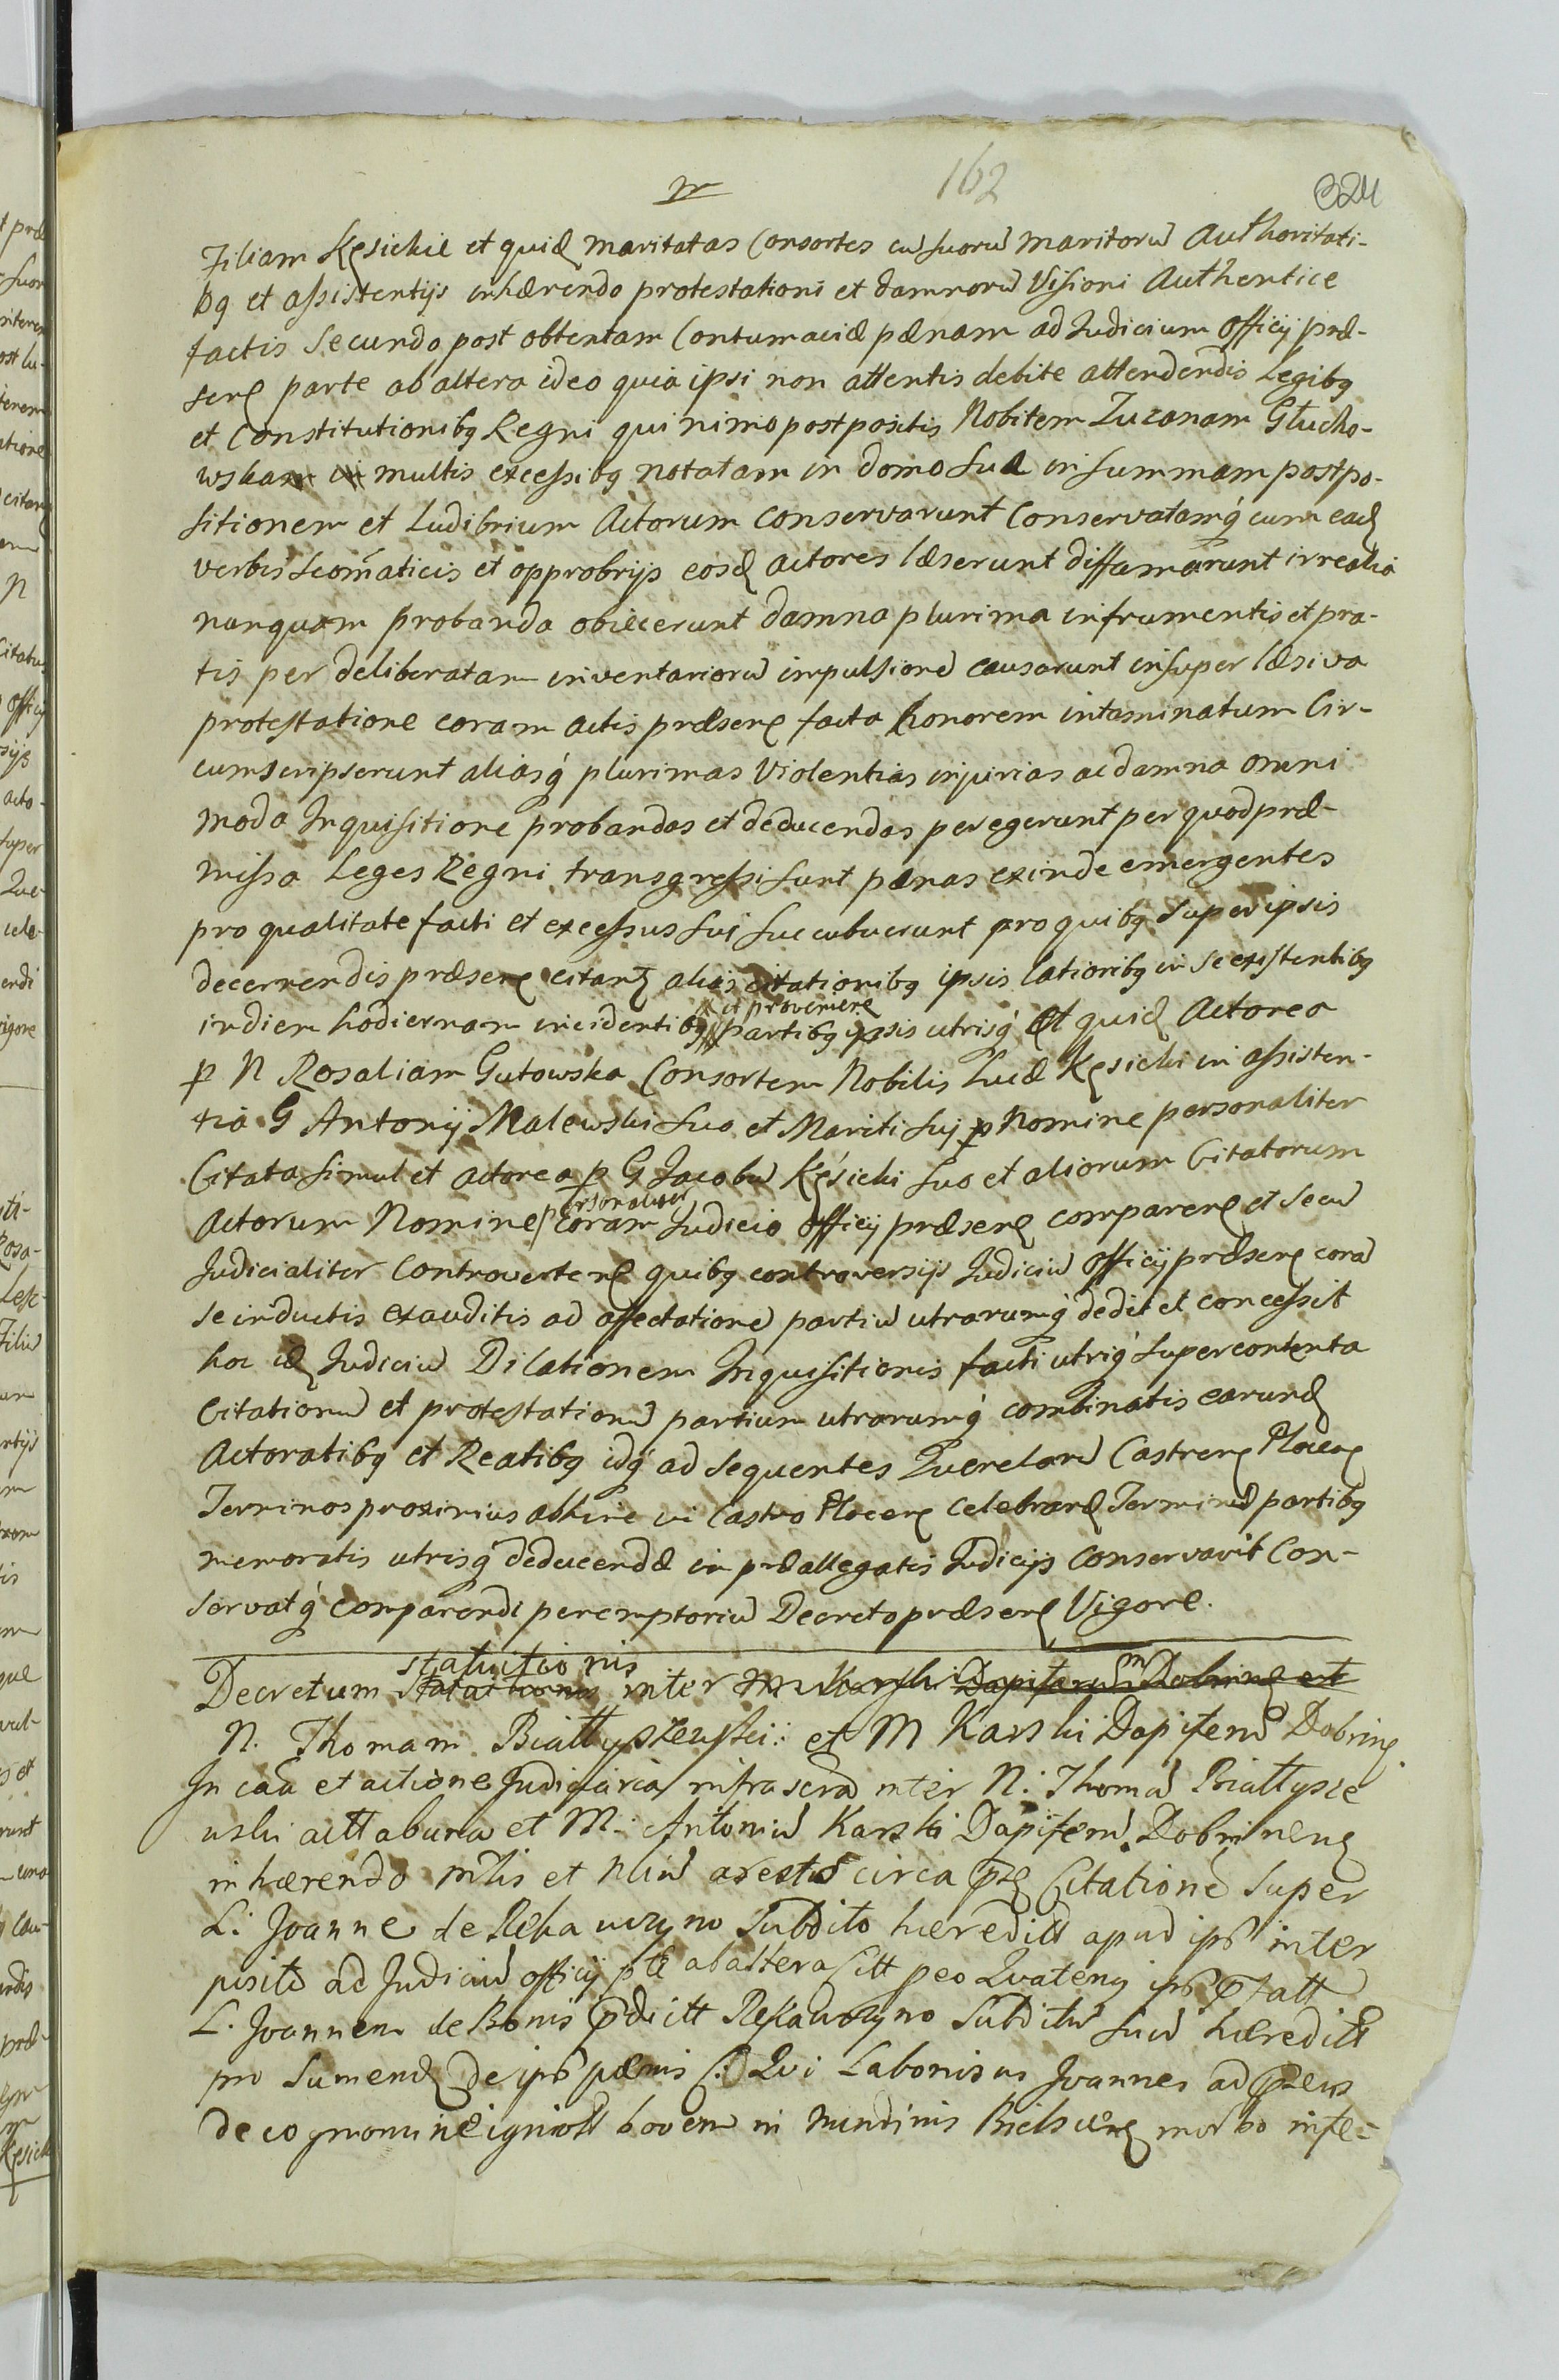 162
324
Filiam Kęsickie et quid maritatas Consortes cu suoru maritoru Authoritati-
bq et assistentijs inhærendo protestationi et damnoru Visioni Authentice
factis Secundo post obtentam Contumaciæ pænam ad Judicium Officij præ-
sen parte ab altera ideo quia ipsi non attentis debite attendendis Legibq
et Constitutionibq Regni quinimo postpositis Nobilem Zuzanam Głucho-
wska multis excessibq notatam in domo sua in summam postpo-
sitionem et Ludibrium Actorum conservarunt Conservatamq́ cum ead
verbis scom̃aticis et opprobrijs eosd actores læserunt diffamarunt irrealia
nunquam probanda obiecerunt damna plurima in frumentis et pra-
tis per deliberatam inventarioru inpulsione causarunt insuper læsiva
protestatione coram actis præsen facta honorem intaminatum Cir-
cumscripserunt aliasq́ plurimas Violentias injurias ac damna omni
moda Inquisitione probandas et deducendas peregerunt per quod præ-
missa Leges Regni transgressi sunt pænas exinde emergentes
pro qualitate facti et excessus sui succubuerunt pro quibq super ipsis
decernendis præsen citant alijs citationibq ipsis lationibq in se existentibq
et provenire
in diem hodiernam incidentibq partibq ipsis utrisq́ Et quid Actorea
p N Rosaliam Gutowska Consortem Nobilis Lucæ Kęsicki in assisten-
tia G Antonij Malewski suo et Mariti sui p Nomine personaliter
Citata simul et actorea p G Jacobu Kęsicki suo et aliorum Citatorum
personaliter
Actorum Nomine coram Judicio Officij præsen comparen et secu
Judicialiter Controverten quibq controversijs Judiciu Officij præsen cora
se inductis exauditis ad affectatione partiu utrarumq́ dedit et concessit
hoc id Judiciu Dilationem Inquisitionis facti utriq́ super contenta
Citationu et protestationu partium utrarumq́ combinatis earund
Actoratibq et Reatibq idq́ ad sequentes Querelaru Castren Plocen
Terminos proximius abhinc in Castro Plocen celebrand Terminu partibq
memoratis utrisq́ deducendæ in præallegatis Judicijs conservavit Con-
servatq́ comparendi peremptoriu Decreto præsen Vigore.
statuitionis
Decretum inter M Karski Dapiferu Dobrinen et
N. Thomam Białłyszewski: et M Karski Dapiferu Dobrinen
In caa et actione Judiciaria infrascra inter N: Thoma Białłysze
wski et M: Antoniu Karski Dapiferu Dobrinen
inhærendo circa Citatione super
L: Joanne de Rękawczyno Subdito hæredit apud ipm inter
posito ad Judiciu officij pte ab altera Citt peo Quateng
L. Joannem de Bonis pdictt Rękawczyno Subditu suu hæreditt
pro sumend de ipo pænis Qui Laboriosus Joannes ad
de cognomine ignott bovem in Nundinis Bielscen morbo infe-